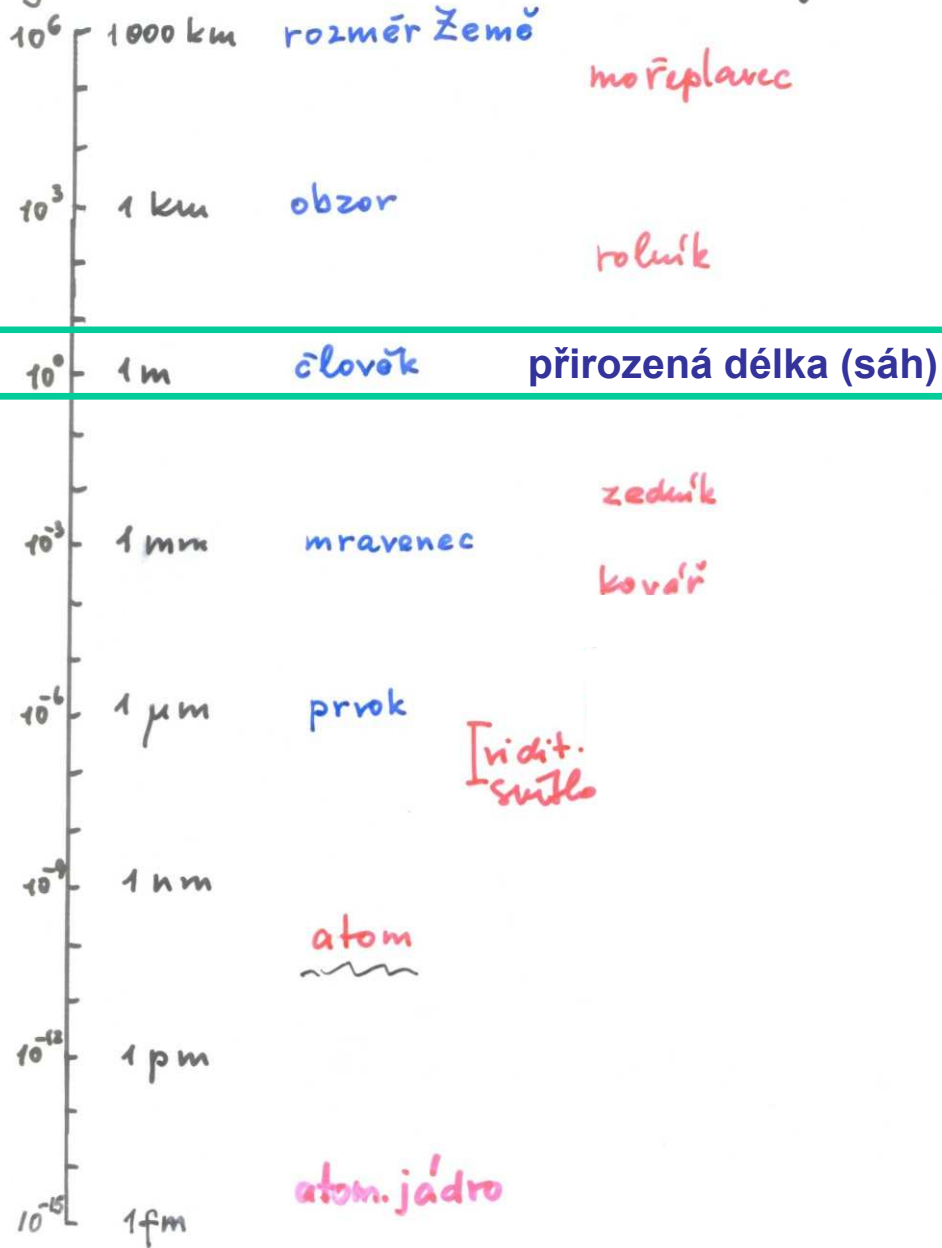 10⁶ 1000 km rozměr Země
mořeplavec
10³ 1 km obzor
rolník
10⁰ 1 m člověk přirozená délka (sáh)
zedník
10⁻³ 1 mm mravenec
kovář
10⁻⁶ 1 μm prvok
vidit.
světlo
10⁻⁹ 1 nm
atom
10⁻¹² 1 pm
atom. jádro
10⁻¹⁵ 1 fm